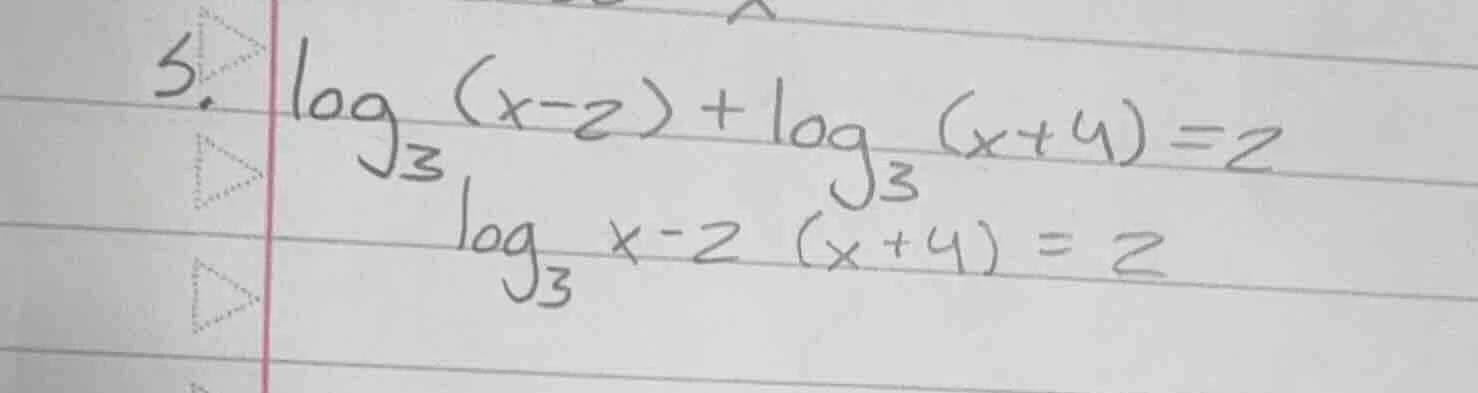 5. log₃ (x-2) + log₃ (x+4) = 2
log₃ x-2 (x+4) = 2